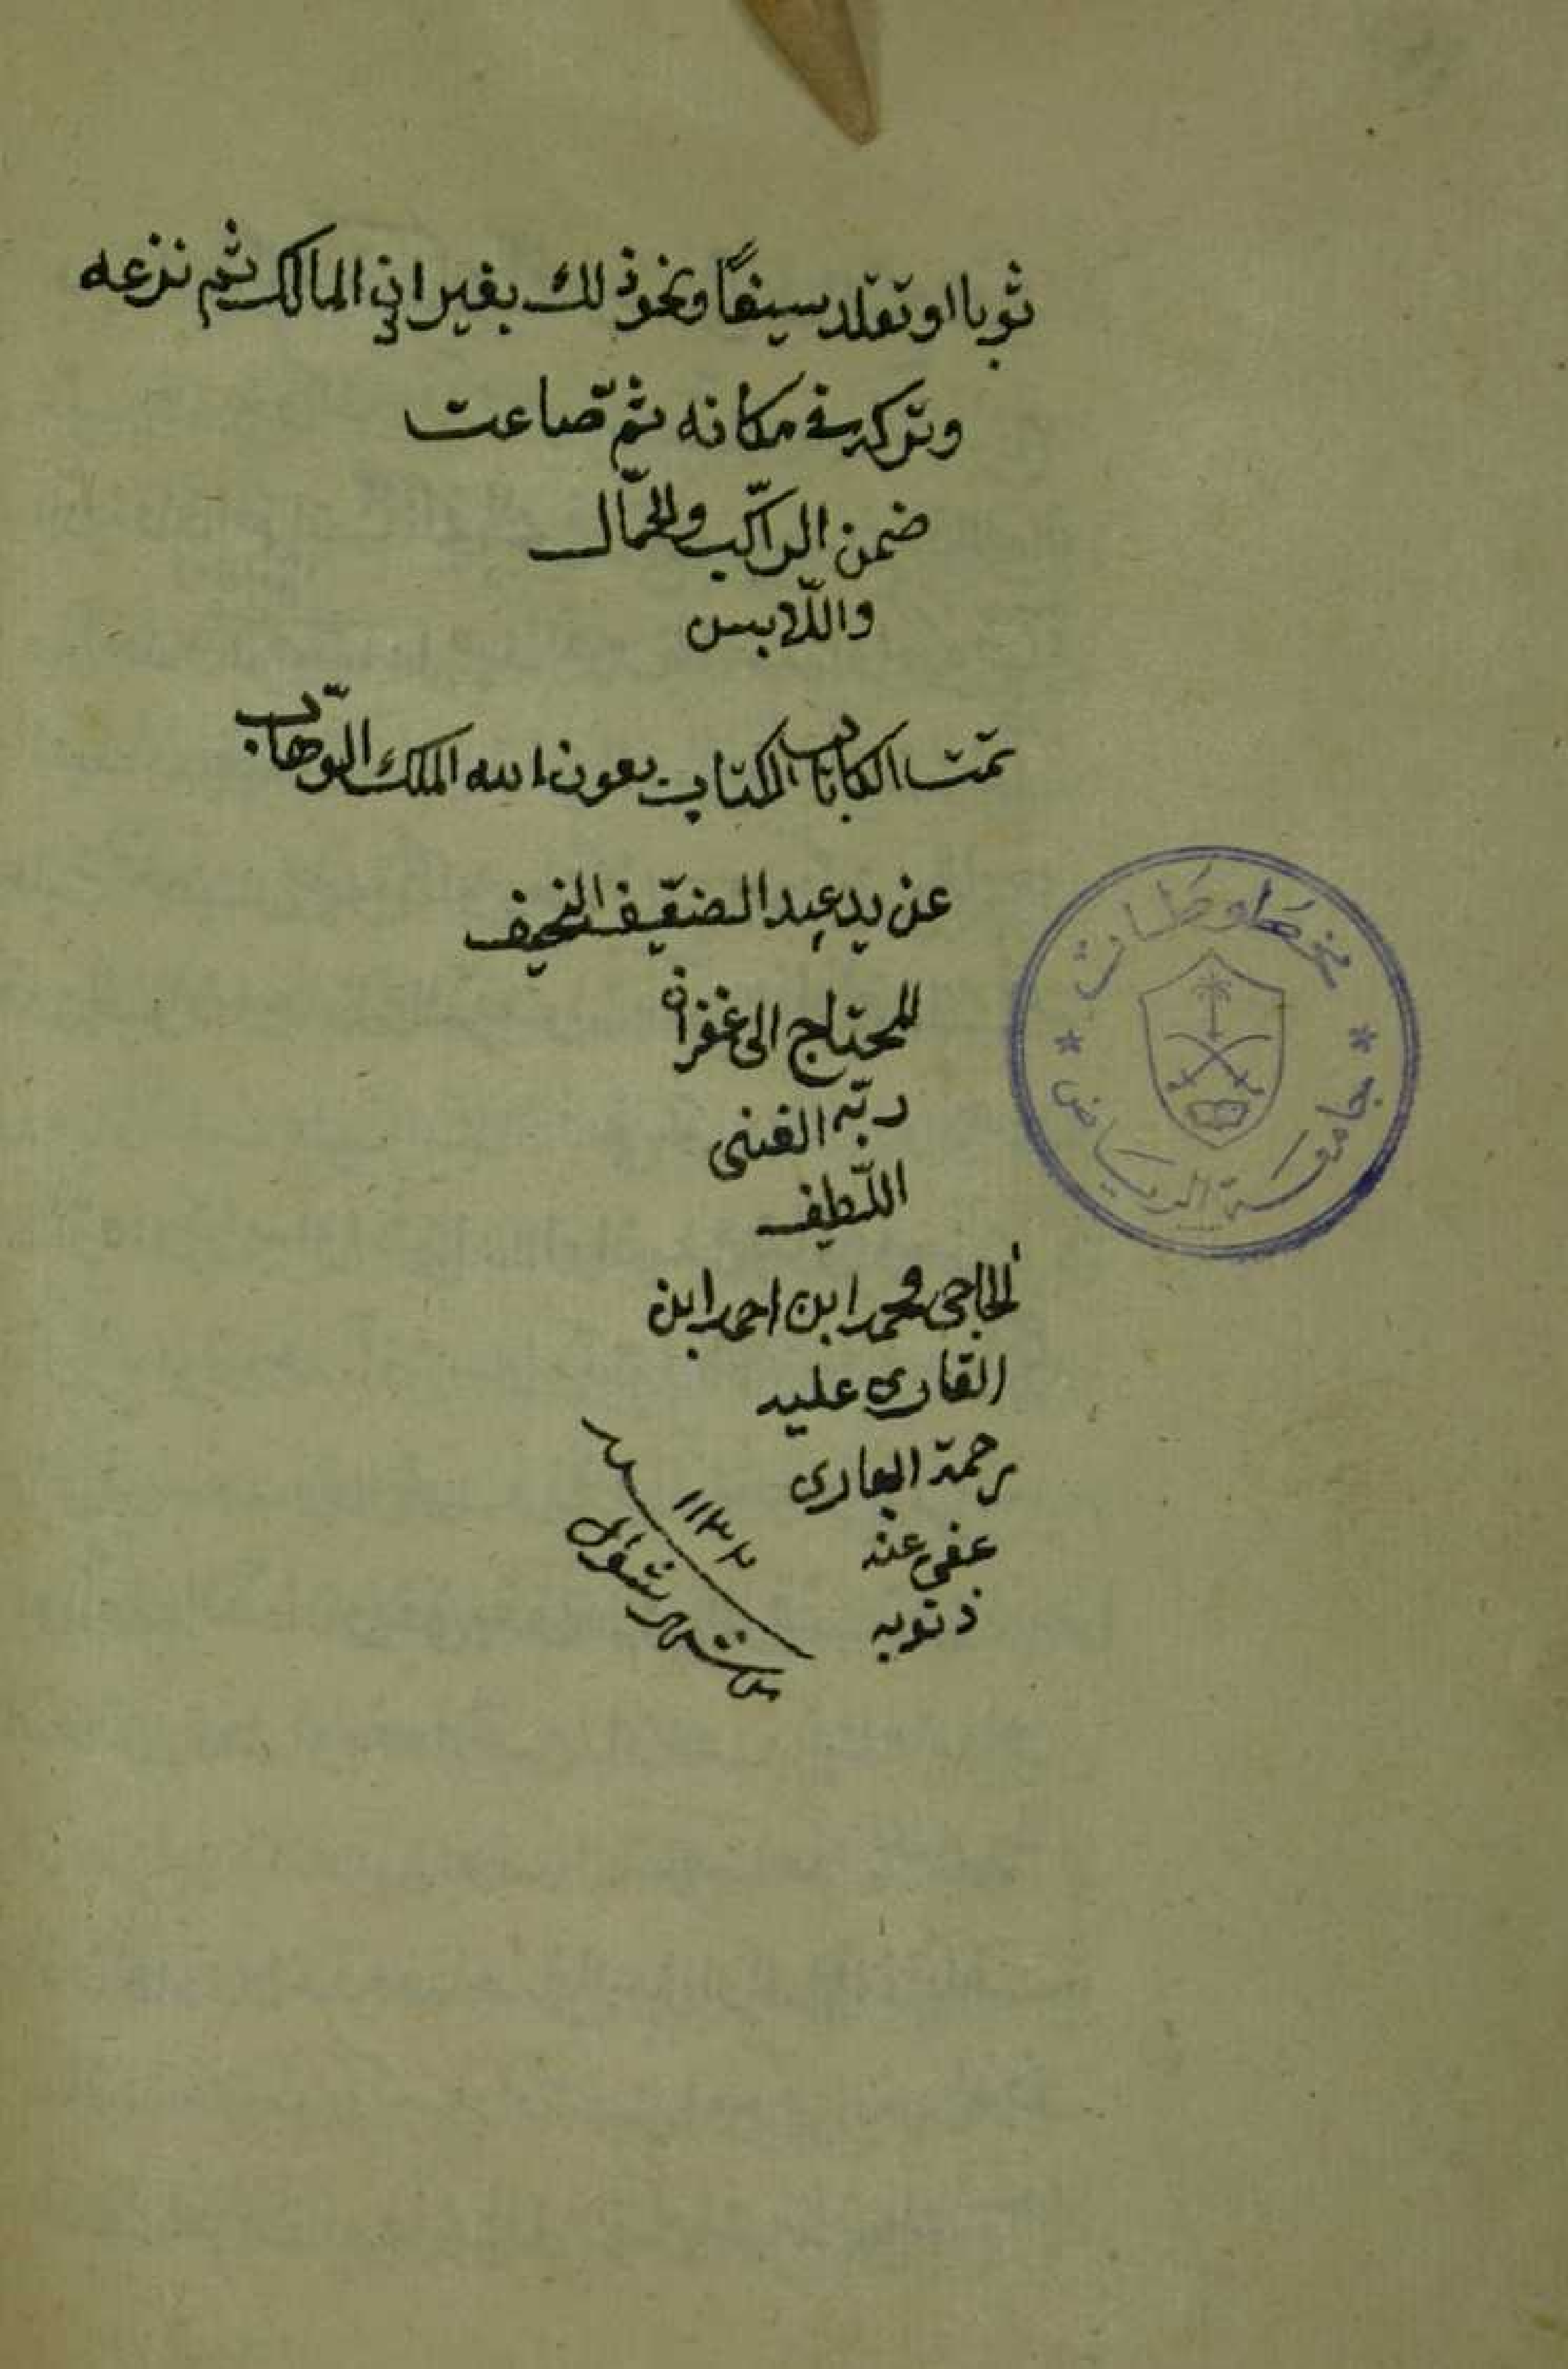 ثوبا او تقلد سيفاً ونحو ذلك بغير اذن المالك ثم نزعه
وتركه في مكانه ثم ضاعت
ضمن الراكب والحمّال
واللّابس
تمت الكتاب بعون الله الملك الوهّاب
عن يد عبد الضعيف النحيف
المحتاج الى غفران
ربّه الغنى
اللّطيف
الحاجى محمد ابن احمد ابن
القارى عليه
رحمة البارى
عفى عنه
ذنوبه
سنه
١١٣٢
شهر شوال
مخطوطات
جامعة الرياض